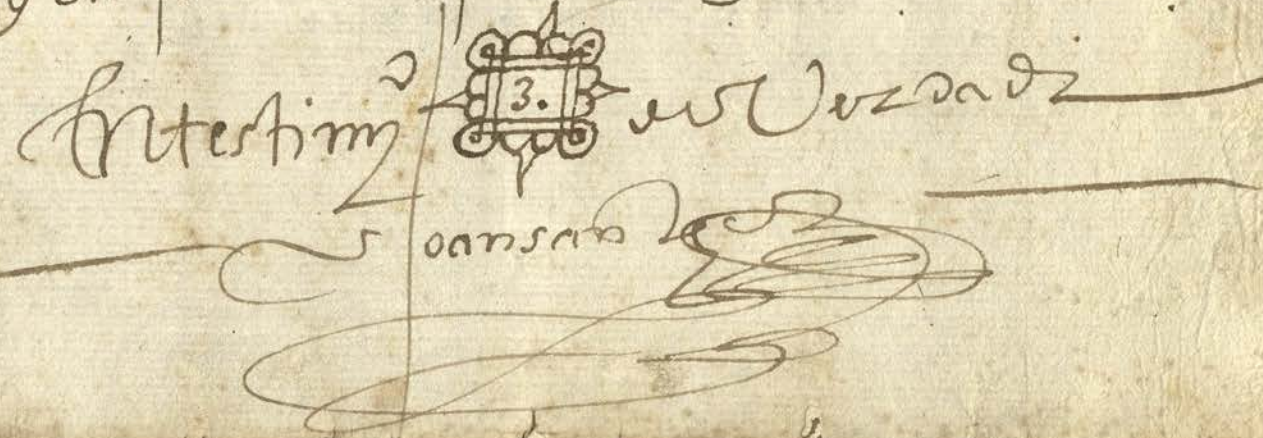 En testimº 3. de Verdad
Joan san